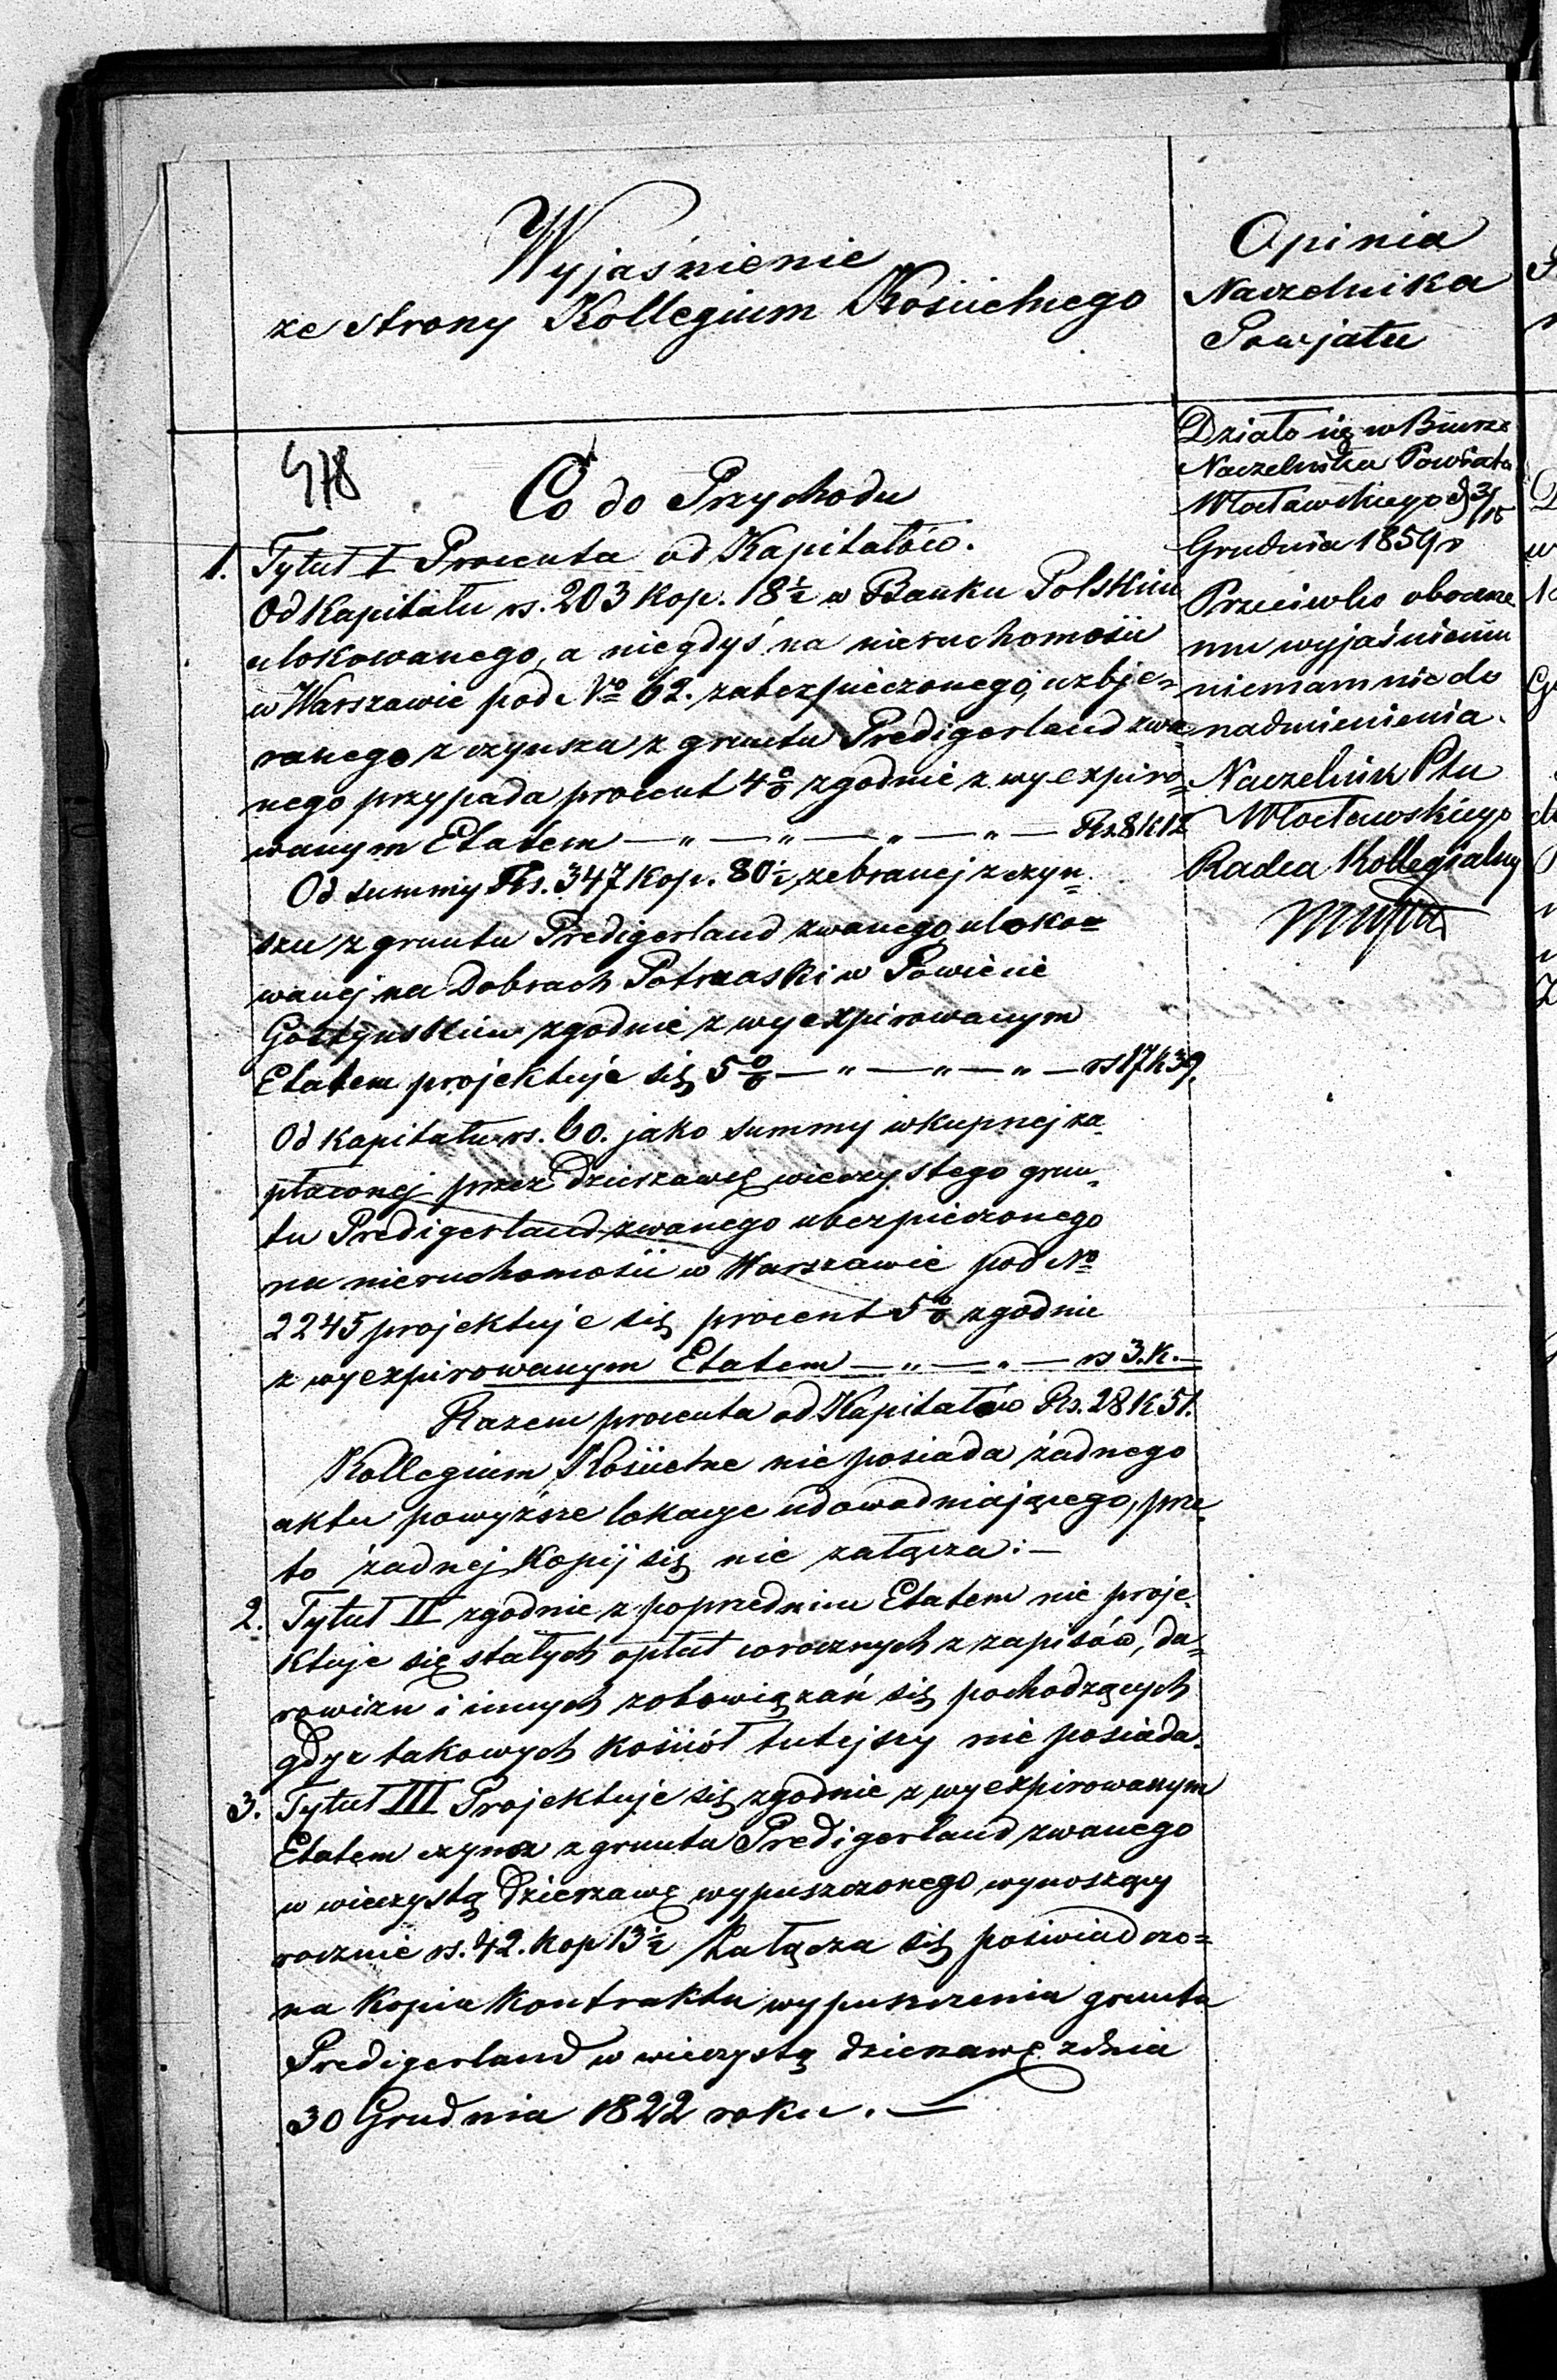 Wyjaśnienie
ze strony Kollegium Kościelnego
Opinia
Naczelnika
Powjatu
478
Co do Przychodu
1. Tytuł I Procenta od Kapitałów.
Od Kapitału rs. 203 Kop. 18½ w Banku Polskim
ulokowanego, a niegdyś na nieruchomości
w Warszawie pod No 62. zabezpieczonego, uzbje=
ranego z czynszu z gruntu Predigerland zwa=
nego przypada procent 4% zgodnie z wyexpiro=
wanym Etatem — „ — „ — „ — „ — Rs. 8 k 12
Od summy Rs. 347 Kop. 80½ zebranej z czyn=
szu z gruntu Predigerland zwanego, uloko=
wanej na Dobrach Potrzaski w Powiecie
Gostyńskim zgodnie z wyexpirowanym
Etatem projektuje się 5% — „ — „ — „ — rs 17 k 39.
Od Kapitału rs. 60. jako summy wkupnej za=
płaconej przez Dzierzawcę wieczystego grun=
tu Predigerland zwanego ubezpieczonego
na nieruchomości w Warszawie pod No
2245 projektuje się procent 5% zgodnie
z wyexpirowanym Etatem — „ — „ — rs 3. k. —
Razem procenta od Kapitałów Rs. 28 k 51.
Kollegium Kościelne nie posiada żadnego
aktu powyższe lokacye udowadniającego, prze=
to żadnej Kopij się nie załącza: —
2. Tytuł II zgodnie z poprzednim Etatem nie proje=
ktuje się stałych opłat corocznych z zapisów, da=
rowizn i innych zobowiązań się pochodzących
gdyz takowych kościół tutejszy nie posiada.
3. Tytuł III Projektuje się zgodnie z wyexpirowanym
Etatem czynsz z gruntu Predigerland zwanego
w wieczystą Dzierzawę wypuszczonego, wynoszący
rocznie rs. 42. Kop 13½ Załącza się poświadczo=
na Kopia Kontraktu wypuszczenia gruntu
Predigerland w wieczystą dzierzawę z dnia
30 Grudnia 1822 roku. —
Działo się w Biurze
Naczelnika Powiatu
Włocławskiego d 3/15
Grudnia 1859 r
Przeciwko obecne
mu wyjaśnieniu
niemam nic do
nadmienienia.
Naczelnik Ptu
Włocławskiego
Radca Kollegialny